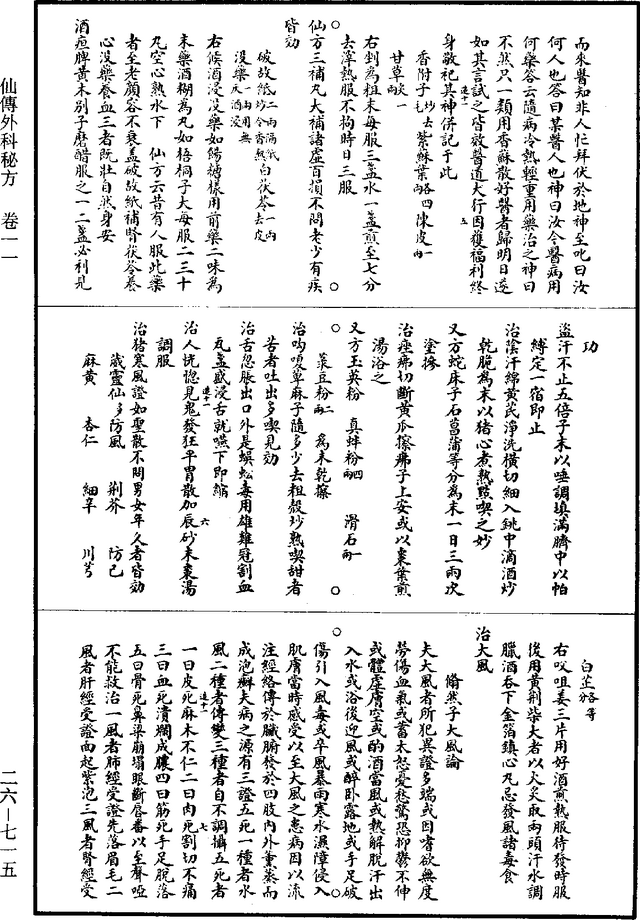 而來醫知非人忙拜伏於地神至叱曰汝
何人也答曰某醫人也神曰汝今醫病用
何藥答云隨病冷熱輕重用藥治之神曰
不然只一類用香蘇散好醫者歸明日遂
如其言試之皆效醫道大行因獲福利終
身敬祀其神併記于此
香附子炒去毛 紫蘇葉各四兩 陳皮二兩
甘草一兩
右剉為粗末每服三盞水一盞煎至七分
去滓熱服不拘時日三服
仙方三補丸大補諸虛百損不問老少有疾
皆効
破故紙二兩隔紙炒令香熟 白茯苓一兩去皮
沒藥一兩用無灰酒浸
右候酒浸沒藥如餳樣用前藥二味為
末藥酒糊為丸如梧桐子大每服二三十
丸空心熱水下 仙方云昔有人服此藥
者至老顏容不衰蓋破故紙補腎茯苓養
心沒藥養血三者既壯自然身安
酒疸脾黃木別子磨醋服之一二盞必利見
功
盜汗不止五倍子末以唾調填滿臍中以帕
縛定一宿即止
治陰汗綿黃芪淨洗橫切細入銚中滴酒炒
乾脆為末以猪心煮熟點喫之妙
又方蛇床子石菖蒲等分為末一日三兩次
塗摻
治痤疿切斷黃瓜擦疿子上妥或以棗葉煎
湯浴之
又方玉英粉 真蚌粉四兩 滑石一兩
菉豆粉二兩 為末乾擦
治吻嗄蓽麻子隨多少去粗殼炒熟喫甜者
苦者吐出多喫見功
治舌忽脹出口外是蜈蚣毒用雄雞冠割血
瓦盞盛浸舌就嚥下即縮
治人恍惚見鬼發狂平胃散加辰砂末棗湯
調服
治猪寒風證如聖散不問男女年久者皆効
葳靈仙多 防風 荊芥 防己
麻黃 杏仁 細辛 川芎
白芷各等分
右㕮咀姜三片用好酒煎熱服待發時服
後用黃荊柴大者以火炙取兩頭汗水調
臘酒吞下金箔鎮心丸忌發風諸毒食
治大風
翛然子大風論
夫大風者所犯異證多端或因嗜欲無度
勞傷血氣或蓄太怒憂愁驚恐抑鬱不伸
或體虛膚空或酌酒當風或熱解脫汗出
入水或浴後迎風或醉卧露地或手足破
傷引入風毒或辛風暴雨寒水濕障侵入
肌膚當時感受以至大風之患病因以流
注經絡傳於臟腑發於四肢內外熏蒸而
成泡癬夫病之源有三證五死一種者水
風二種者傳變三種者自不調攝五死者
一曰皮死麻木不仁二曰肉死割切不痛
三曰血死潰爛成膿四曰筋死手足脫落
五曰骨死鼻梁崩塌眼斷唇番以至聲啞
不能救治一風者肺經受證先落眉毛二
風者肝經受證面起紫泡三風者腎經受
仙傳外科秘方 卷一一
二六—七一五